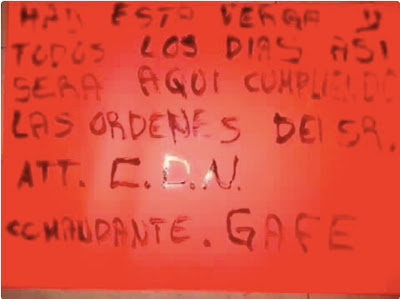 HAY ESTA VERGA Y
TODOS LOS DIAS ASI
SERA AQUI CUMPLIENDO
LAS ORDENES DEl SR.
ATT. C.D.N.
COMANDANTE. GAFE